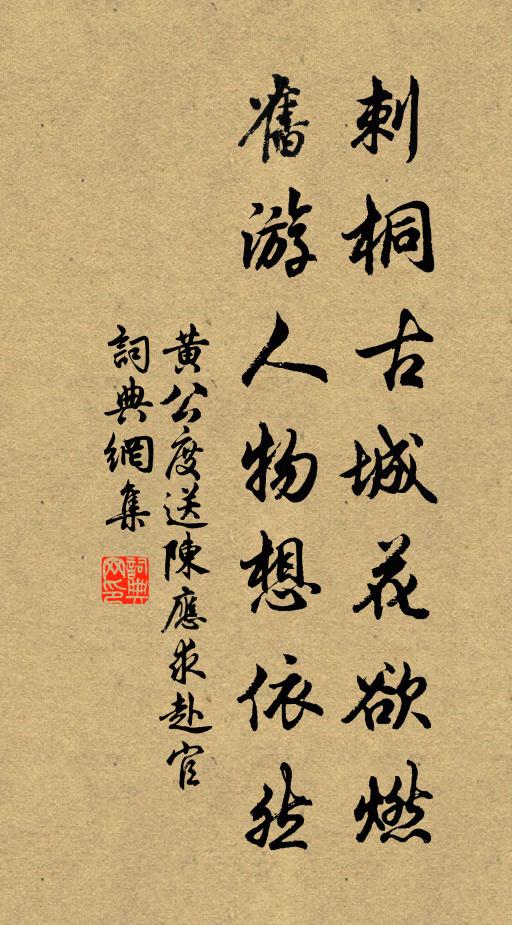 刺桐古城花欲燃
舊游人物想依然
黃公度送陳應求赴官
詞典網集
詞典網印